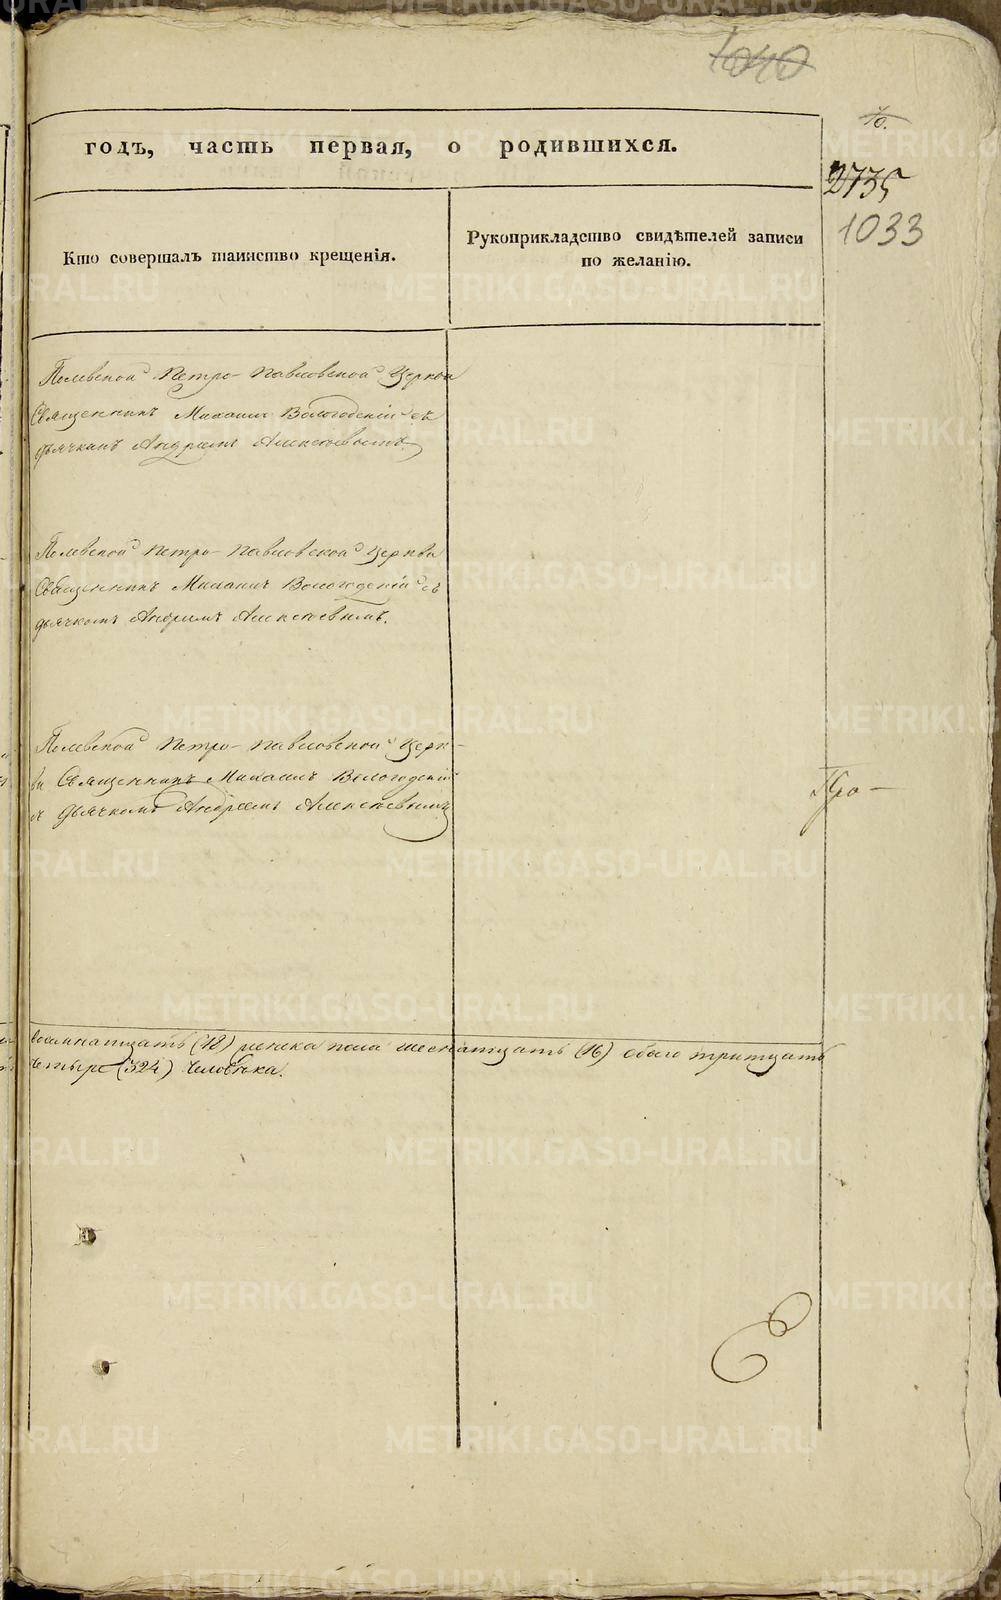 1040
10.
годъ, часть первая, о родившихся.
2735
1033
Кто совершалъ таинство крещенія.
Рукоприкладство свидѣтелей записи
по желанію.
Полевской Петро-Павловской Церкви
Священникъ Михаилъ Вологодскій съ
дьячкомъ Андреемъ Алексѣевымъ.
Полевской Петро-Павловской Церкви
Священникъ Михаилъ Вологодскій съ
дьячкомъ Андреемъ Алексѣевымъ.
Полевской Петро-Павловской Церк-
ви Священникъ Михаилъ Вологодскій
съ дьячкомъ Андреемъ Алексѣевымъ
Про-
восемнатцать (18) женска пола шеснатцать (16) обоего тритцать
четыре (34) человѣка.
METRIKI.GASO-URAL.RU